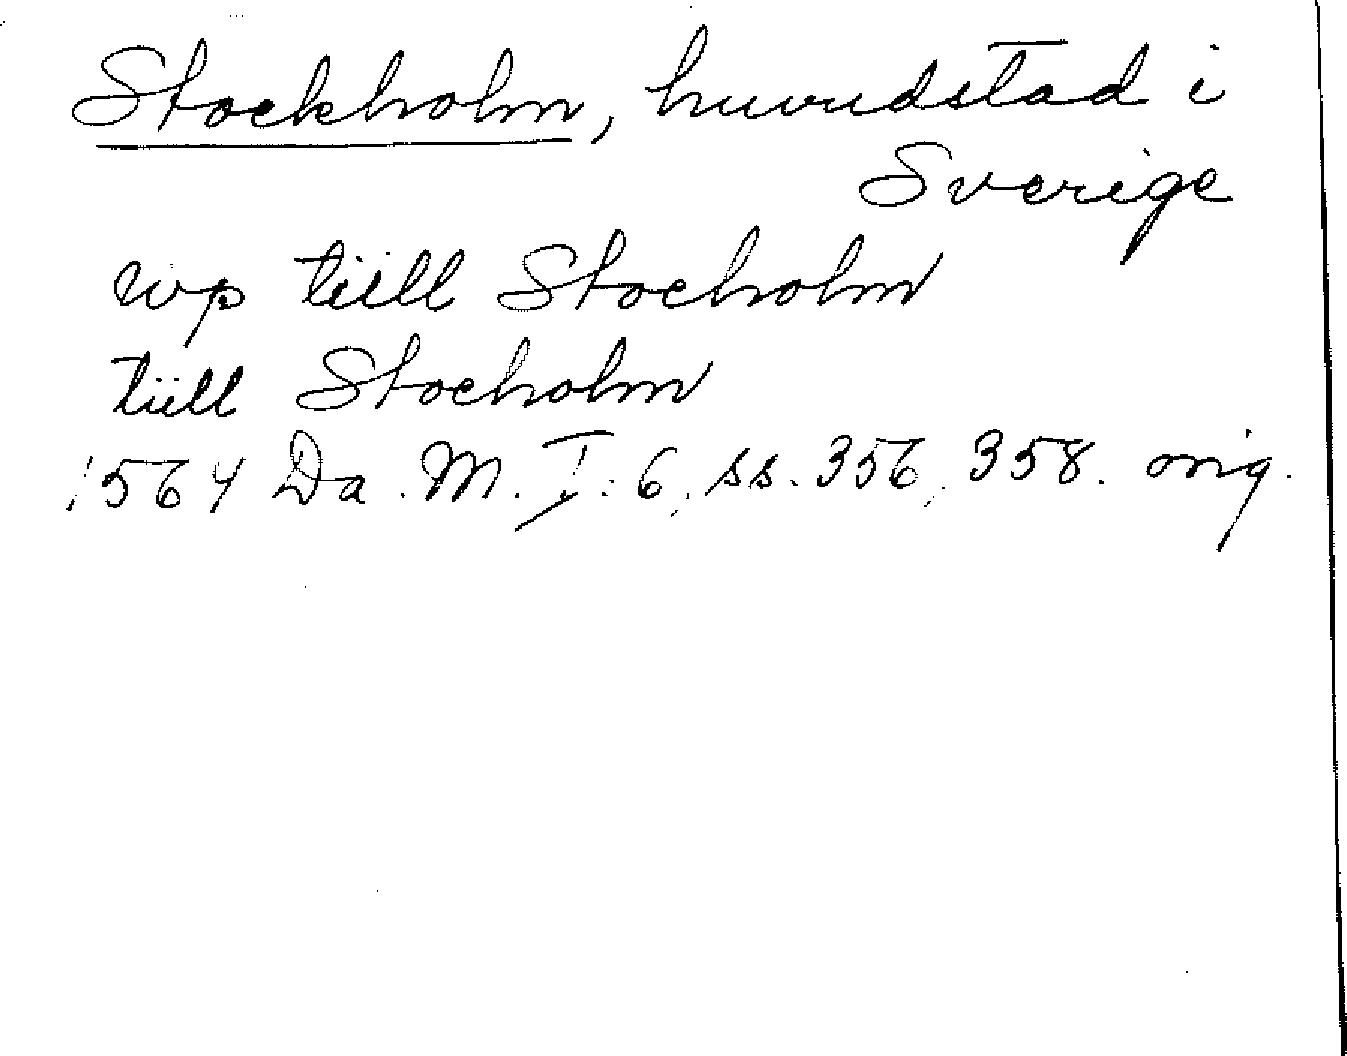 Stockholm, huvudstad i
Sverige
wp tiill Stocholm
tiill Stocholm
1564 Da. M. I: 6, ss. 356, 358. orig.